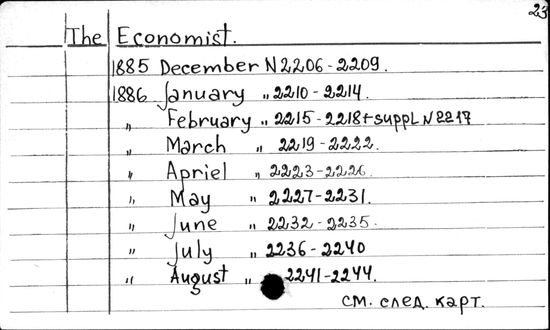 23
The Economist.
1885 December N 2206-2209.
1886 January „ 2210-2214.
„ February „ 2215-2218+suppl. N 2217
„ March „ 2219-2222.
„ Apriel „ 2223-2226.
„ May „ 2227-2231.
„ June „ 2232-2235.
„ July „ 2236-2240
„ August „ 2241-2244.
см. след. карт.